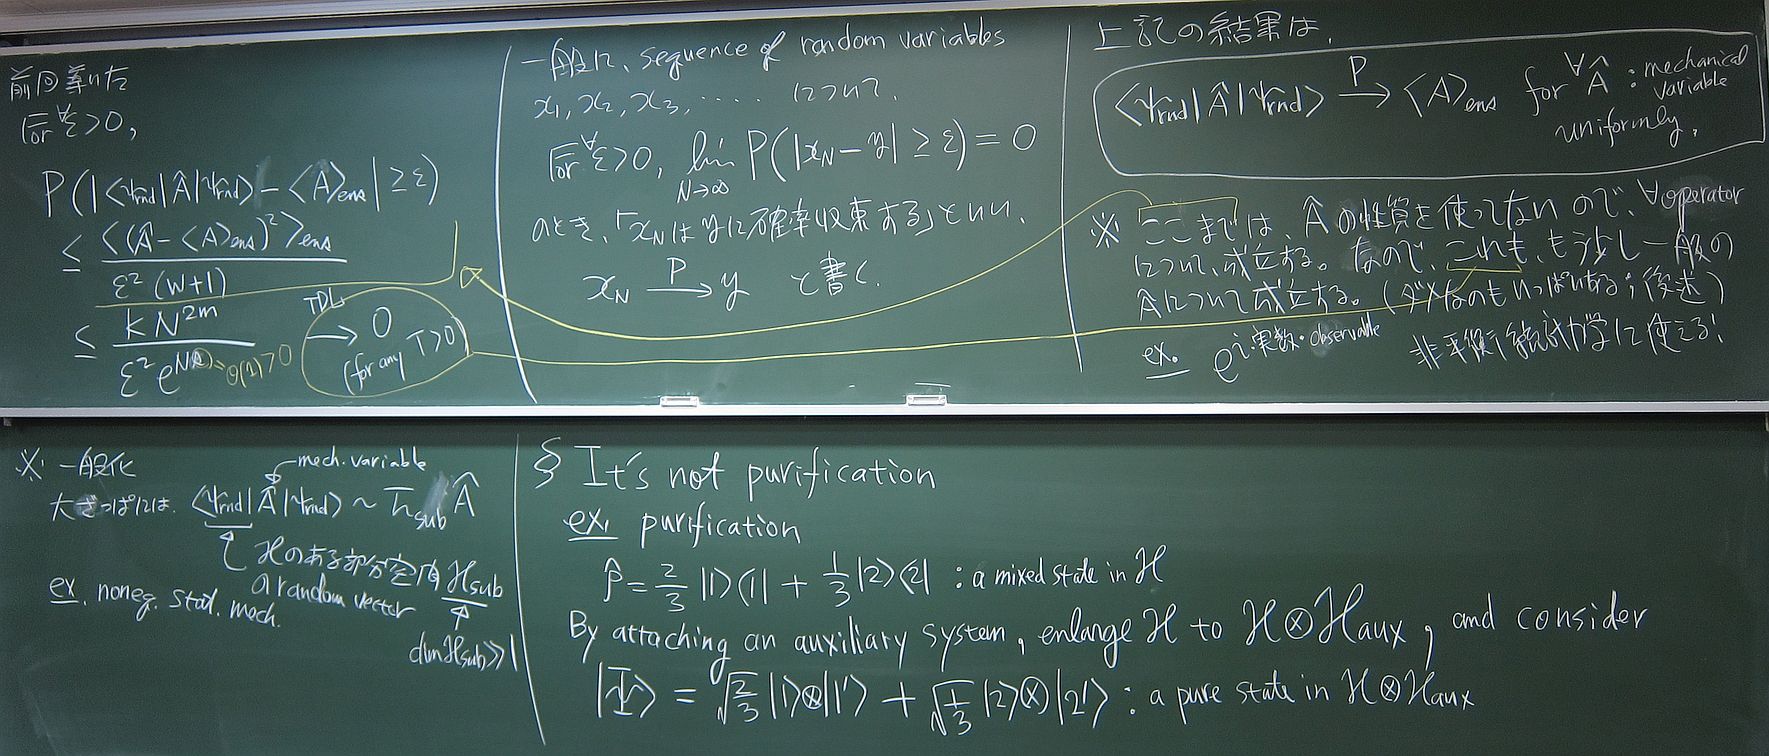 前回導いた
For ∀ε>0,
P(|<ψrnd|Â|ψrnd> - <A>ens| ≥ ε)
≤ <(Â - <A>ens)²>ens / ε²(W+1)
≤ kN^2m / ε² e^Ns =Θ(1)>0 TDL → 0 (for any T>0)
一般に、sequence of random variables
x₁, x₂, x₃, ..... について、
For ∀ε>0, lim N→∞ P(|x_N - y| ≥ ε) = 0
のとき、「x_Nはyに確率収束する」といい、
x_N P→ y と書く.
上記の結果は,
<ψrnd|Â|ψrnd> P→ <A>ens for ∀Â : mechanical variable
uniformly.
※ ここまでは、Âの性質を使ってないので、∀operator
について成立する。なので、これも、もう少し一般の
Âについて成立する。(ダメなのもいっぱいある;後述)
ex. e^i・実数・observable 非平衡統計力学に使える!
※ 一般化
mech. variable
大ざっぱには、<ψrnd|Â|ψrnd> ~ Tr_sub Â
Hのある部分空間Hsub
a random vector
ex. noneq. stat. mech.
dim Hsub≫1
§ It's not purification
ex. purification
ρ̂ = 2/3 |1><1| + 1/3 |2><2| : a mixed state in H
By attaching an auxiliary system, enlarge H to H⊗Haux, and consider
|Ψ> = √2/3 |1>⊗|1'> + √1/3 |2>⊗|2'> : a pure state in H⊗Haux